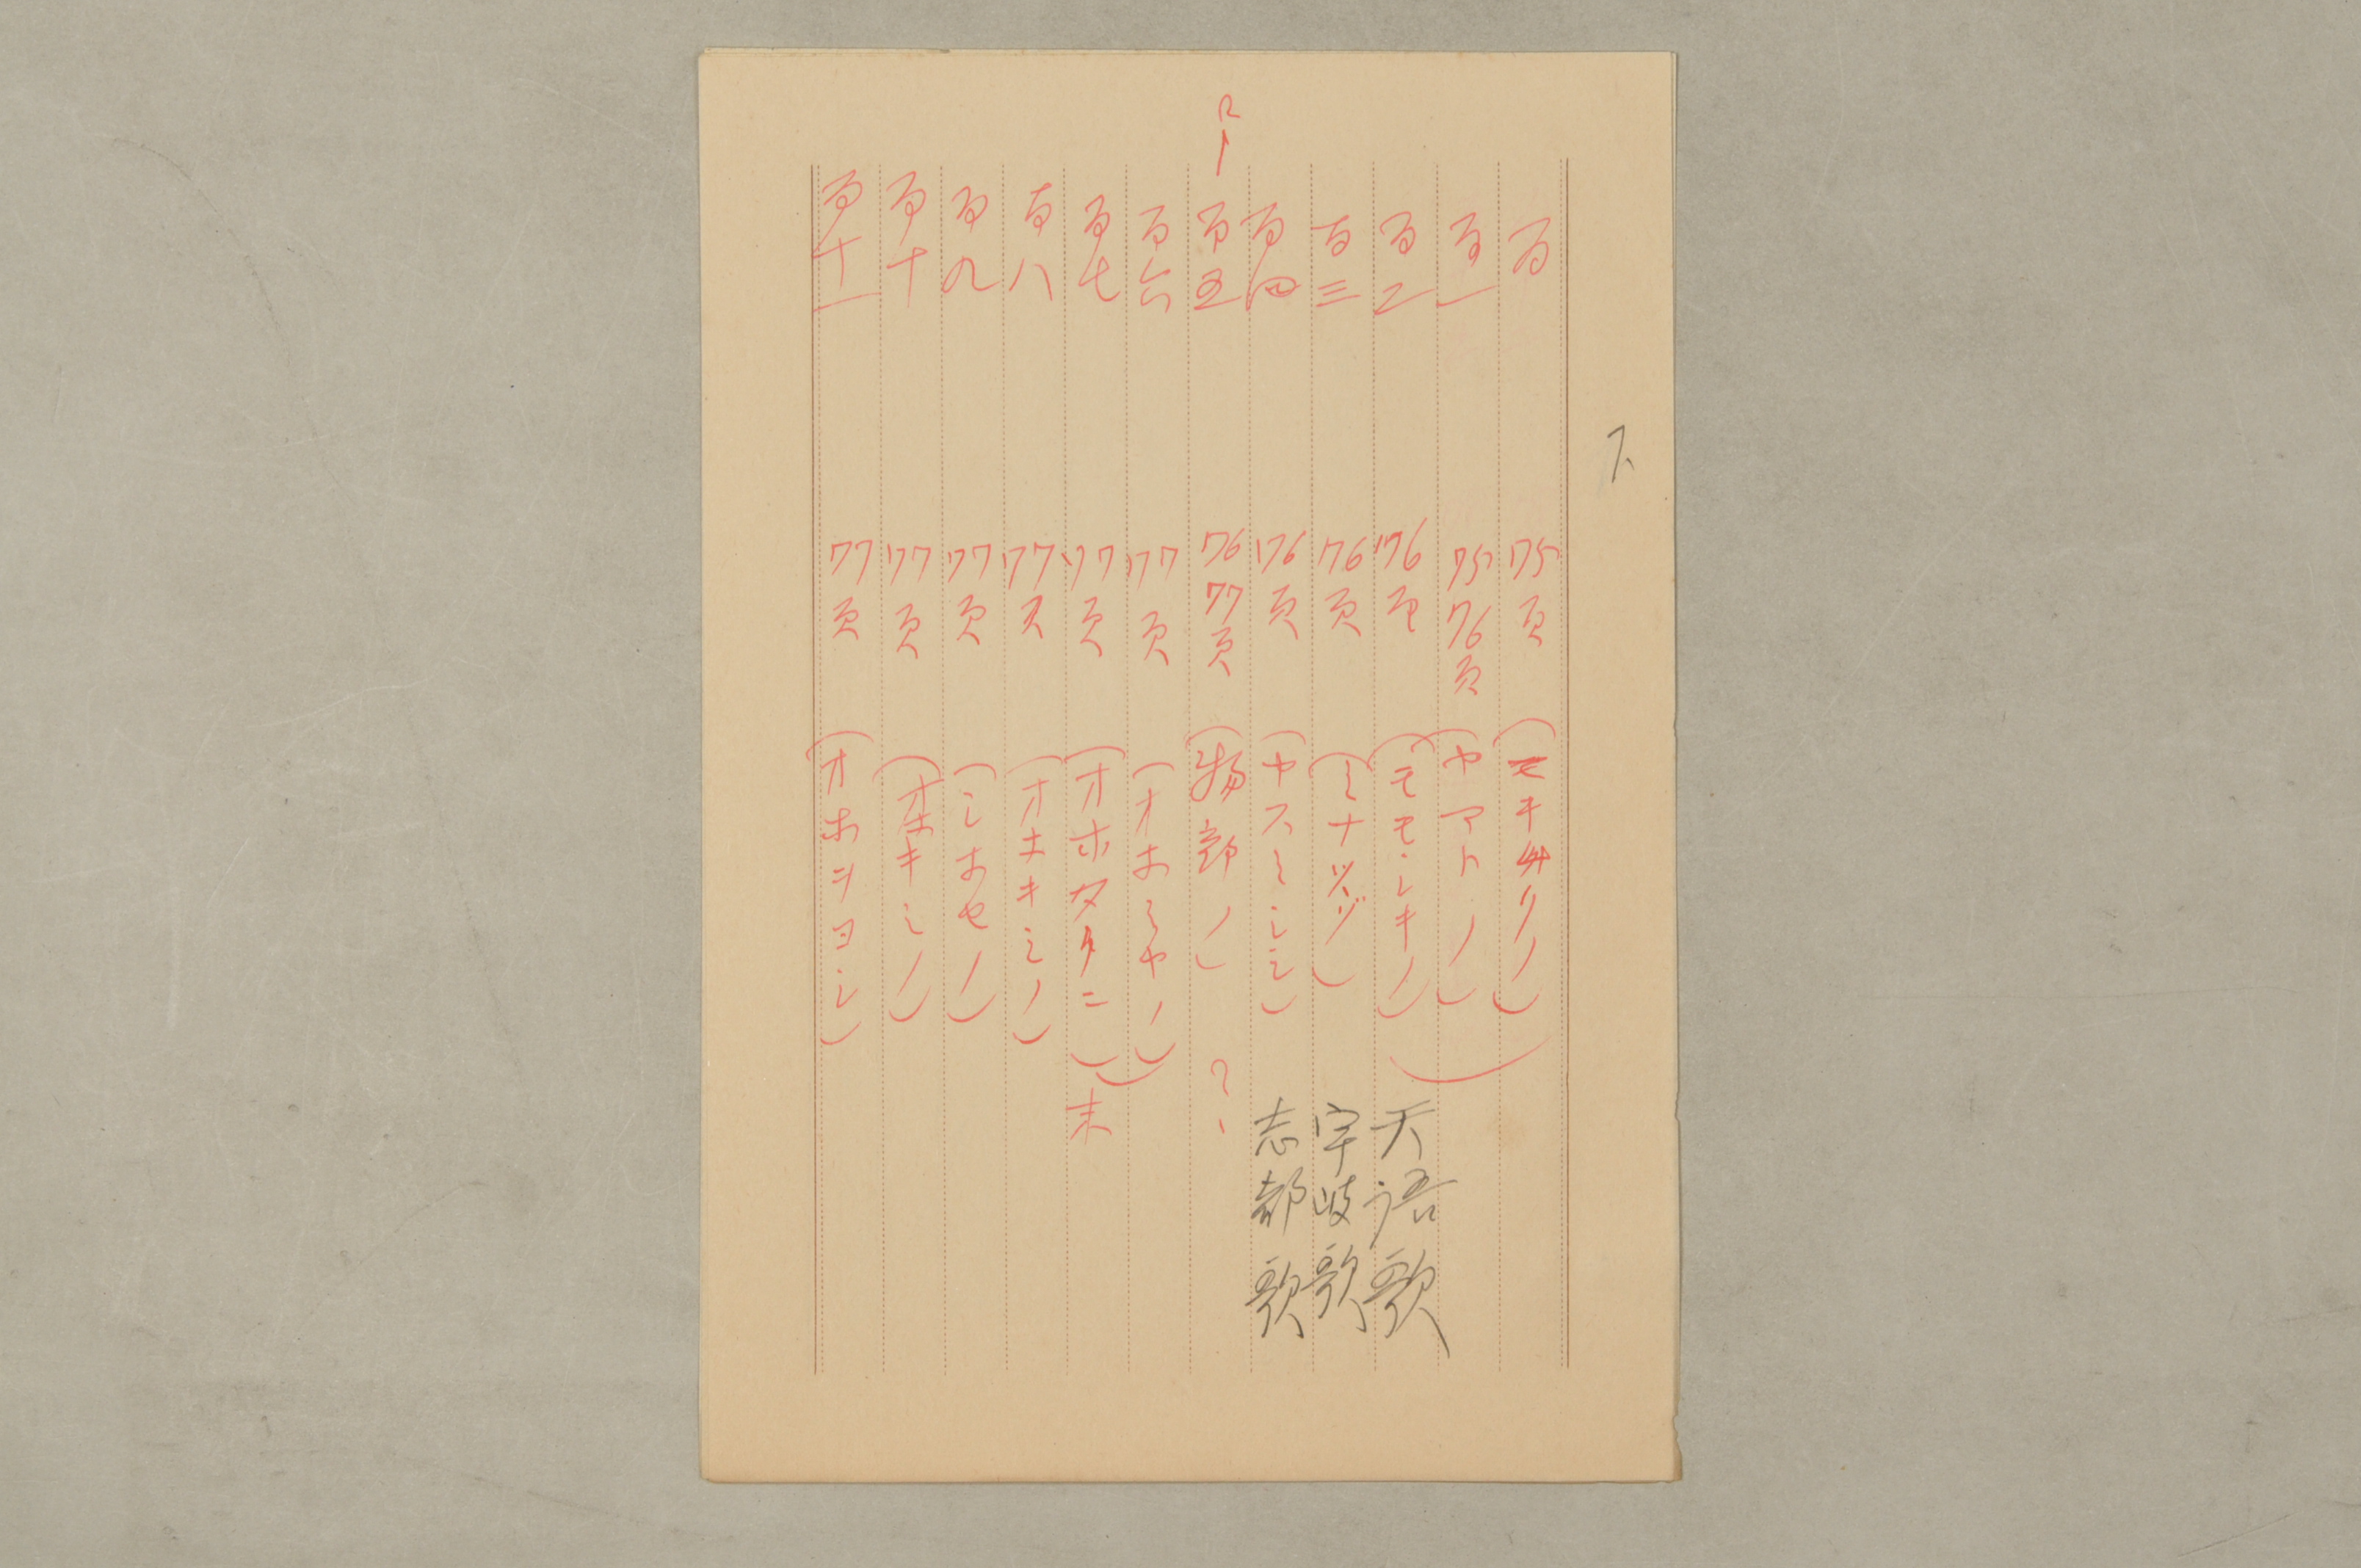 下
百 75頁 (マキムクノ)
百一 75 76頁 (ヤマトノ)
百二 76頁 (モモシキノ) 天語歌
百三 76頁 (ミナソソグ) 宇岐歌
百四 76頁 (ヤスミシシ) 志都歌
百五 76 77頁 (物部ノ) ?
百六 77頁 (オホミヤノ)
百七 77頁 (オホタクミ) 末
百八 77頁 (オホキミノ)
百九 77頁 (シホセノ)
百十 77頁 (オホキミノ)
百十一 77頁 (オホヲヨシ)